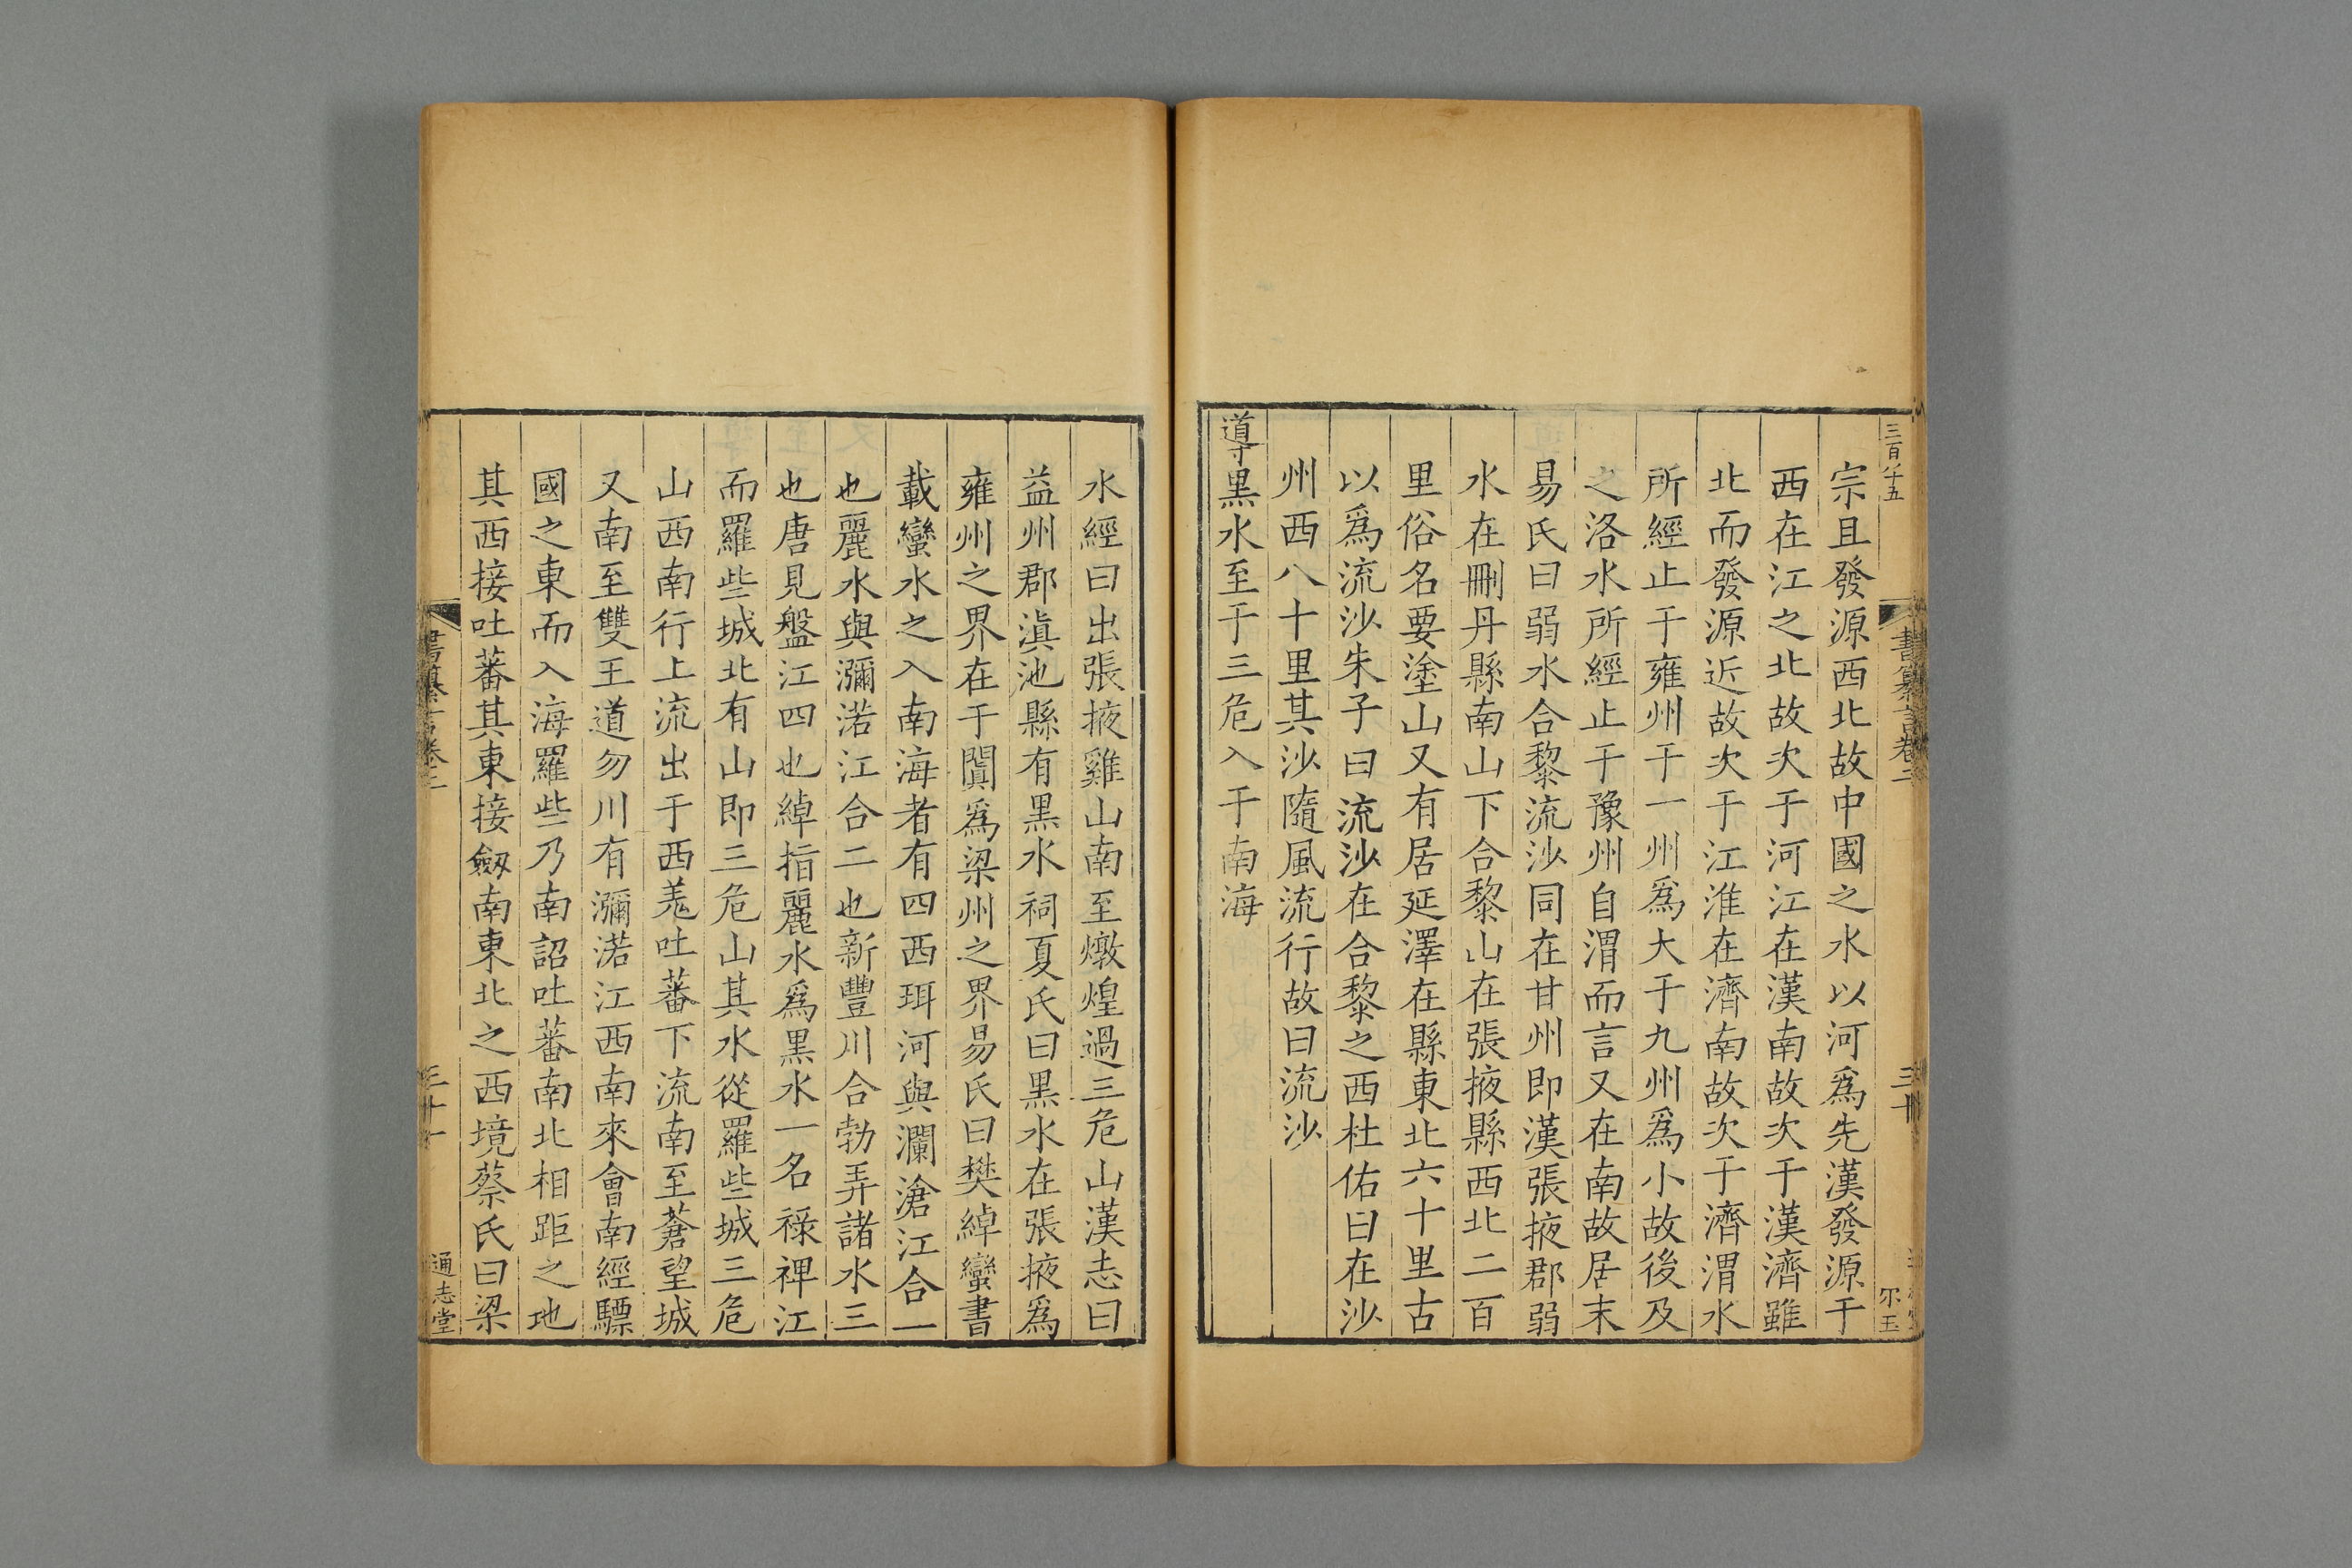 三百八十五
書纂言卷二
三十
尔玉
宗且發源西北故中國之水以河爲先漢發源于
西在江之北故次于河江在漢南故次于漢濟雖
北而發源近故次于江淮在濟南故次于濟渭水
所經止于雍州于一州爲大于九州爲小故後及
之洛水所經止于豫州自渭而言又在南故居末
易氏曰弱水合黎流沙同在甘州即漢張掖郡弱
水在刪丹縣南山下合黎山在張掖縣西北二百
里俗名要塗山又有居延澤在縣東北六十里古
以爲流沙朱子曰流沙在合黎之西杜佑曰在沙
州西八十里其沙隨風流行故曰流沙
導黑水至于三危入于南海
水經曰出張掖雞山南至燉煌過三危山漢志曰
益州郡滇池縣有黑水祠夏氏曰黑水在張掖爲
雍州之界在于闐爲梁州之界易氏曰樊綽蠻書
載蠻水之入南海者有四西珥河與瀾滄江合一
也麗水與瀰渃江合二也新豐川合勃弄諸水三
也唐見盤江四也綽指麗水爲黑水一名祿裨江
而羅些城北有山即三危山其水從羅些城三危
山西南行上流出于西羗吐蕃下流南至蒼望城
又南至雙王道勿川有瀰渃江西南來會南經驃
國之東而入海羅些乃南詔吐蕃南北相距之地
其西接吐蕃其東接劔南東北之西境蔡氏曰梁
書纂言卷二
三十一
通志堂